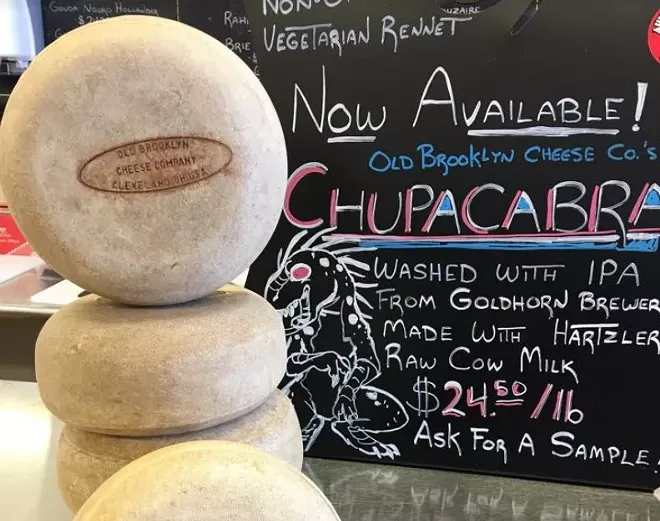 Gouda Noord Hollander
Non-
Vegetarian Rennet
Now Available!
Old Brooklyn Cheese Co.'s
CHUPACABRA
Washed with IPA
From Goldhorn Brewer
Made With Hartzler
Raw Cow Milk
$24.50/lb
Ask For A Sample!
OLD BROOKLYN
CHEESE COMPANY
CLEVELAND OH USA